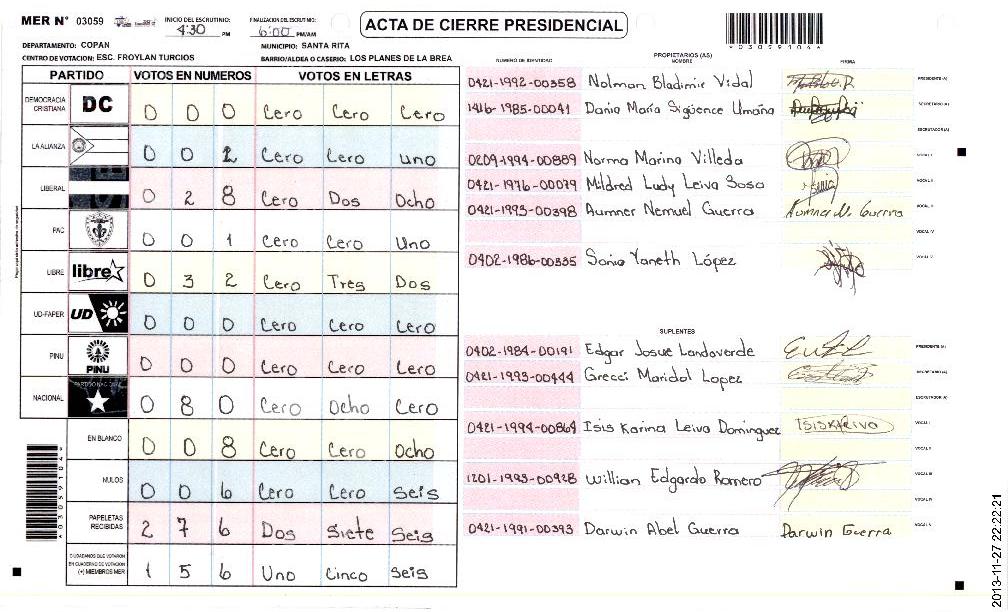 MER N° 03059
INICIO DEL ESCRUTINIO: 4:30 PM
FINALIZACION DEL ESCRUTINIO: 6:00 PM/AM
ACTA DE CIERRE PRESIDENCIAL
*030591046*
DEPARTAMENTO: COPAN
MUNICIPIO: SANTA RITA
CENTRO DE VOTACION: ESC. FROYLAN TURCIOS
BARRIO/ALDEA O CASERIO: LOS PLANES DE LA BREA
PARTIDO VOTOS EN NUMEROS VOTOS EN LETRAS
DEMOCRACIA CRISTIANA DC 0 0 0 Cero Cero Cero
LA ALIANZA 0 0 1 Cero Cero uno
LIBERAL 0 2 8 Cero Dos Ocho
PAC 0 0 1 Cero Cero Uno
LIBRE libre 0 3 2 Cero Tres Dos
UD-FAPER UD 0 0 0 Cero Cero Cero
PINU PINU 0 0 0 Cero Cero Cero
NACIONAL PARTIDO NACIONAL 0 8 0 Cero Ocho Cero
EN BLANCO 0 0 8 Cero Cero Ocho
NULOS 0 0 6 Cero Cero Seis
PAPELETAS RECIBIDAS 2 7 6 Dos Siete Seis
CIUDADANOS QUE VOTARON EN CUADERNO DE VOTACION (+) MIEMBROS MER 1 5 6 Uno Cinco Seis
PROPIETARIOS (AS)
NUMERO DE IDENTIDAD NOMBRE FIRMA
0421-1992-00358 Nolman Bladimir Vidal PRESIDENTE (A)
1416-1985-00041 Dania María Sigüence Umaña SECRETARIO (A)
ESCRUTADOR (A)
0209-1994-00889 Norma Marina Villeda VOCAL I
0421-1976-00079 Mildred Ludy Leiva Sosa VOCAL II
0421-1993-00398 Aumner Nemuel Guerra VOCAL III
VOCAL IV
0402-1986-00335 Sonia Yaneth López VOCAL V
SUPLENTES
0402-1984-00191 Edgar Josue Landaverde PRESIDENTE (A)
0421-1993-00444 Grecci Maridol Lopez SECRETARIO (A)
ESCRUTADOR (A)
0421-1994-00864 Isis Karina Leiva Dominguez ISISKARIVO VOCAL I
VOCAL II
1201-1993-00928 Willian Edgardo Romero VOCAL III
VOCAL IV
0421-1991-00393 Darwin Abel Guerra Darwin Guerra VOCAL V
2013-11-27 22:22:21